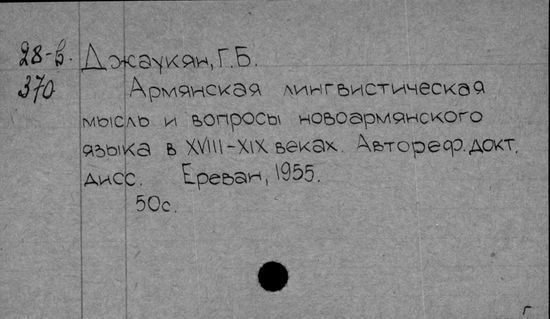 28-в. Джаукян, Г.Б.
370 Армянская лингвистическая
мысль и вопросы новоармянского
языка в XVIII-XIX веках. Автореф. докт.
дисс. Ереван, 1955.
50с.
г